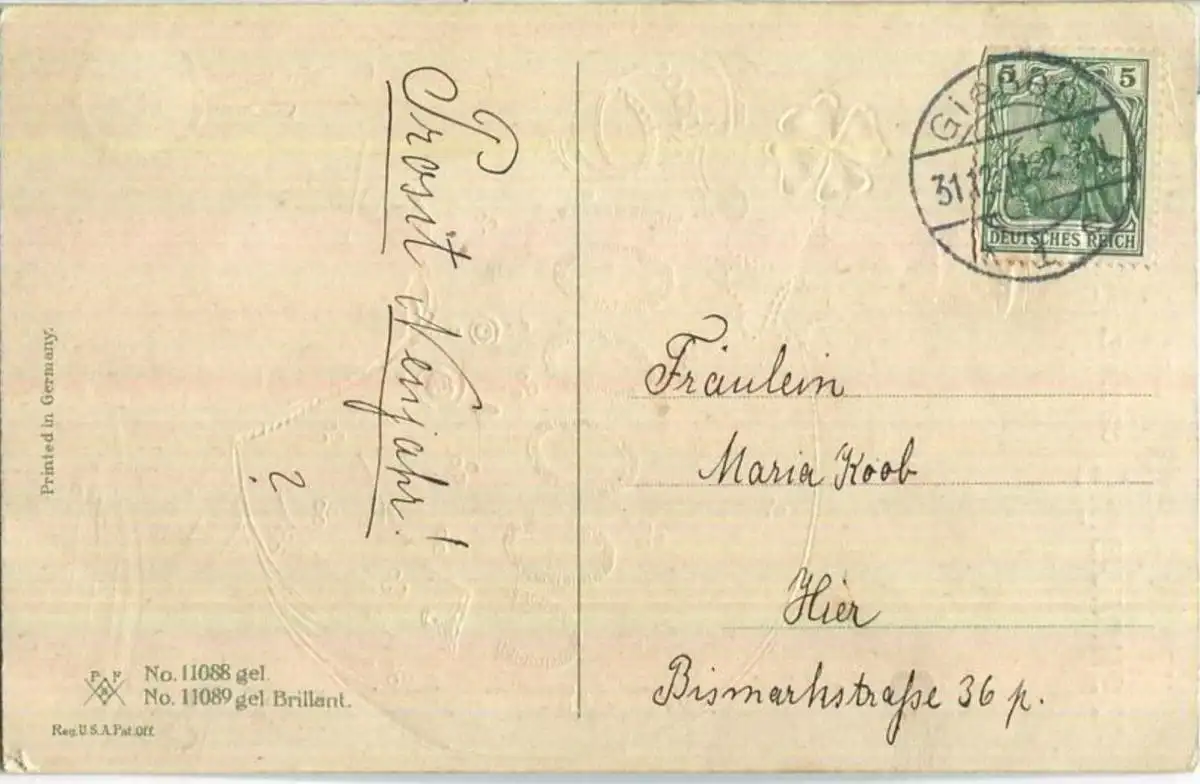 Prosit Neujahr!
?
Printed in Germany.
P F
No. 11088 gel.
No. 11089 gel. Brillant.
Reg. U.S.A. Pat. Off.
5 5
DEUTSCHES REICH
31.12.
Fräulein
Maria Koob
Hier
Bismarkstraße 36 p.